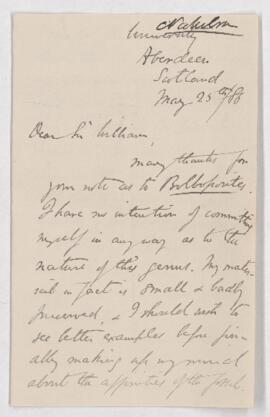 Nicholson
University
Aberdeen
Scotland
May 25th/88
Dear Sir William,
Many thanks for
your note as to Bolboporites.
I have no intention of committing
myself in any way as to the
nature of this genus. My mater-
ial in fact is small & badly
preserved, & I should wish to
see better examples before fin-
ally making up my mind
about the affinities of the fossil.